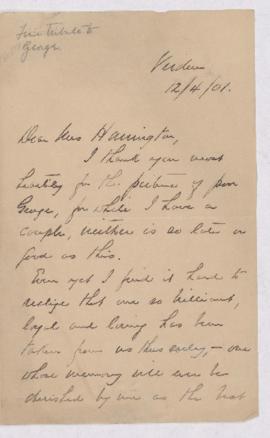 Fine tribute to
George
12/4/01.
Dear Mrs Harrington,
I thank you most
heartily for the picture of poor
George, for while I have a
couple, neither is so late or
good as this.
Even yet I find it hard to
realize that one so brilliant,
loyal and loving has been
taken from us thus early, — one
whose memory will ever be
cherished by me as the best